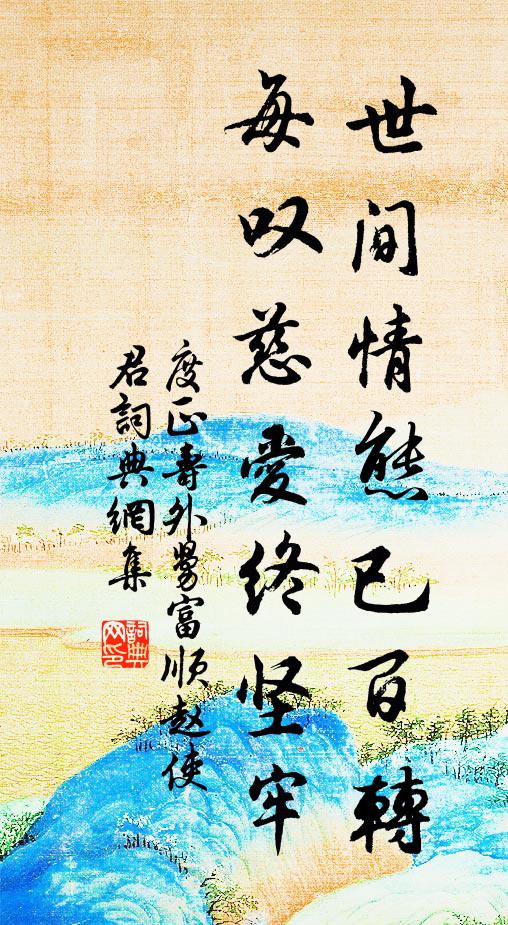 世间情态已百轉
每叹慈爱终坚牢
度正壽外舅富顺赵使
君詞典網集
詞典网印